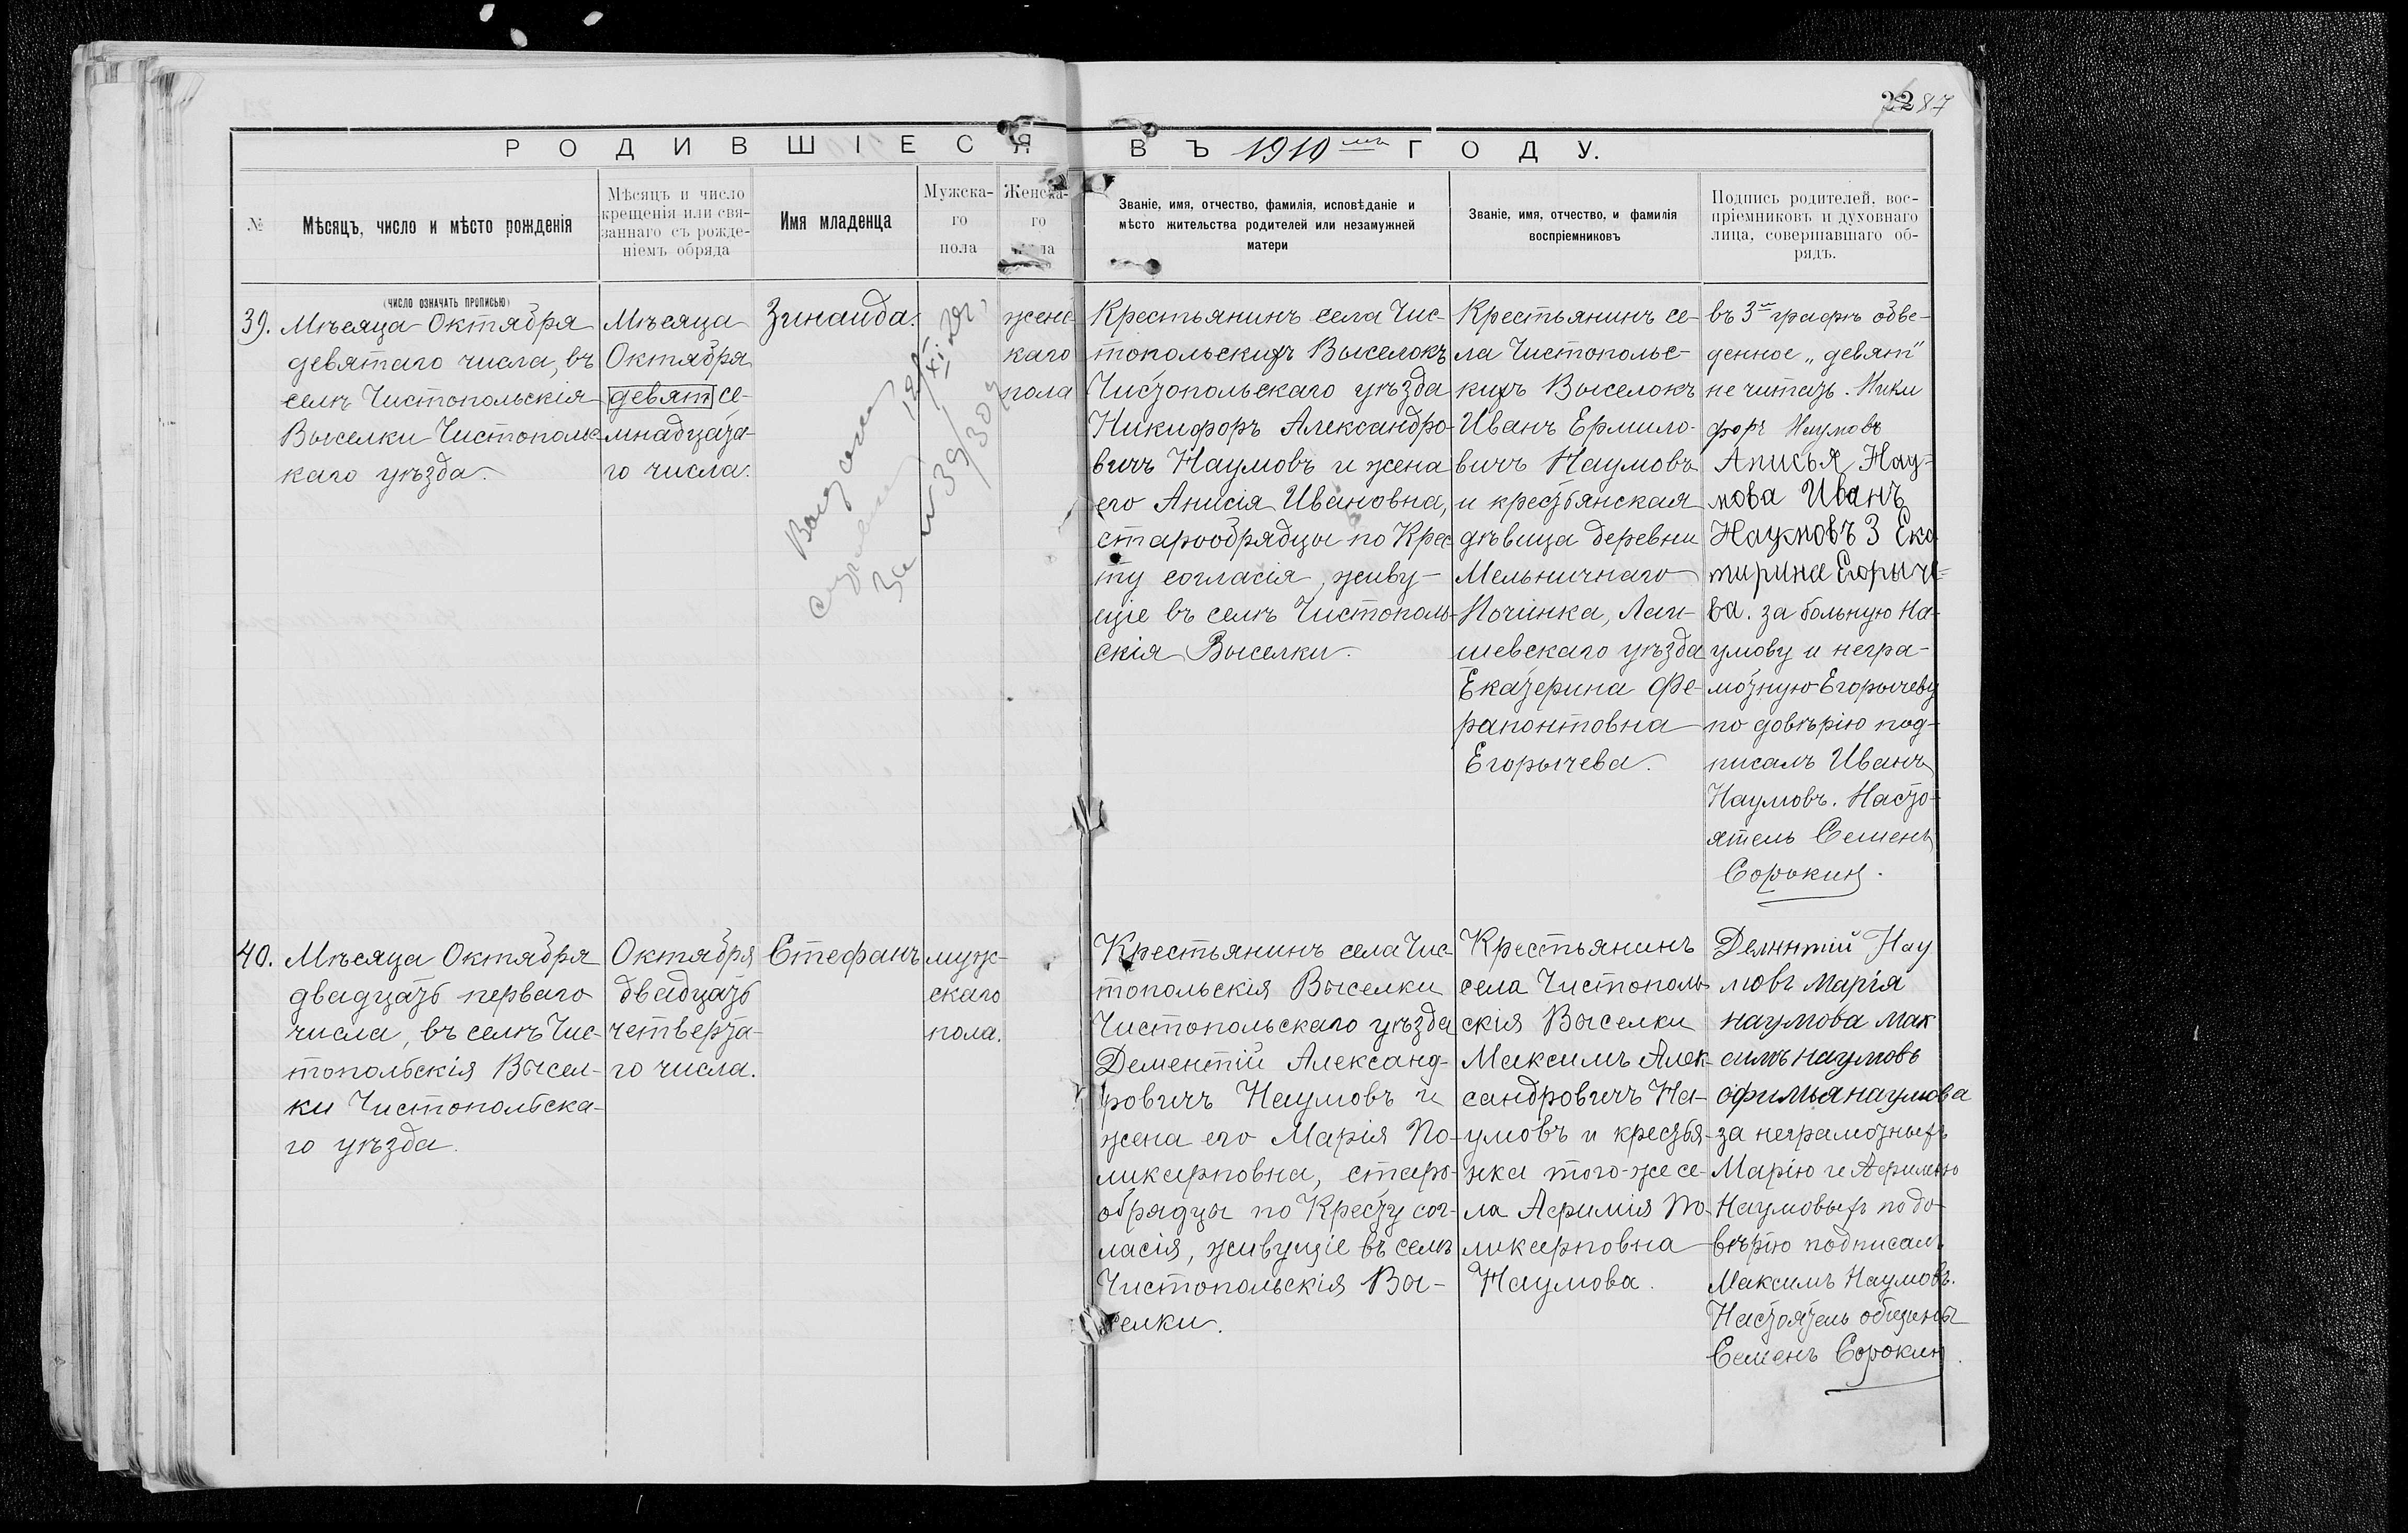 22 87
РОДИВШІЕСЯ ВЪ 1910мъ ГОДУ.
№
Мѣсяцъ, число и мѣсто рожденія
Мѣсяцъ и число
крещенія или свя-
заннаго съ рожде-
ніемъ обряда
Имя младенца
Мужска-
го
пола
Женска-
го
пола
Званіе, имя, отчество, фамилія, исповѣданіе и
мѣсто жительства родителей или незамужней
матери
Званіе, имя, отчество, и фамилія
воспріемниковъ
Подпись родителей, вос-
пріемниковъ и духовнаго
лица, совершавшаго об-
рядъ.
(число означать прописью)
39. Мѣсяца Октября
девятаго числа, въ
селѣ Чистопольскія
Выселки Чистопольс-
каго уѣзда.
Мѣсяца
Октября
девят се-
мнадцата-
го числа.
Зинаида.
женс-
каго
пола
Крестьянинъ села Чис-
топольскихъ Выселокъ
Чистопольскаго уѣзда
Никифоръ Александро-
вичъ Наумовъ и жена
его Анисія Ивановна,
старообрядцы по Крес-
ту согласія, живу-
щіе въ селѣ Чистополь-
скія Выселки.
Крестьянинъ се-
ла Чистопольс-
кихъ Выселокъ
Иванъ Ермило-
вичъ Наумовъ
и крестьянская
дѣвица деревни
Мельничнаго
Починка, Лаи-
шевскаго уѣзда
Екатерина Фе-
рапонтовна
Егорычева.
въ 3й графѣ обве-
денное „девят"
не читать. Ники
форъ Наумовъ
Анисья Нау-
мова Иванъ
Наумовъ З Ека
тирина Егорыче-
ва. за больную На-
умову и негра-
мотную Егорычеву
по довѣрію под-
писалъ Иванъ
Наумовъ. Насто-
ятель Семенъ
Сорокинъ.
12/XI 29г.
за № 39/309
40. Мѣсяца Октября
двадцать перваго
числа, въ селѣ Чис-
топольскія Высел-
ки Чистопольска-
го уѣзда.
Октября
двадцать
четверта-
го числа.
Стефанъ
муж-
скаго
пола.
Крестьянинъ села Чис-
топольскія Выселки
Чистопольскаго уѣзда
Дементій Александ-
ровичъ Наумовъ и
жена его Марія По-
ликарповна, старо-
обрядцы по Кресту сог-
ласія, живущіе въ селѣ
Чистопольскія Вы-
селки.
Крестьянинъ
села Чистополь-
скія Выселки
Максимъ Алек-
сандровичъ На-
умовъ и крестья-
нка того-же се-
ла Афимія По-
ликарповна
Наумова.
Нау
мовъ Марія
наумова мак
симъ наумовъ
офимья наумова
за неграмотныхъ
Марію и Афимью
Наумовыхъ по до-
вѣрію подписалъ
Максимъ Наумовъ.
Настоятель общины
Семенъ Сорокин.